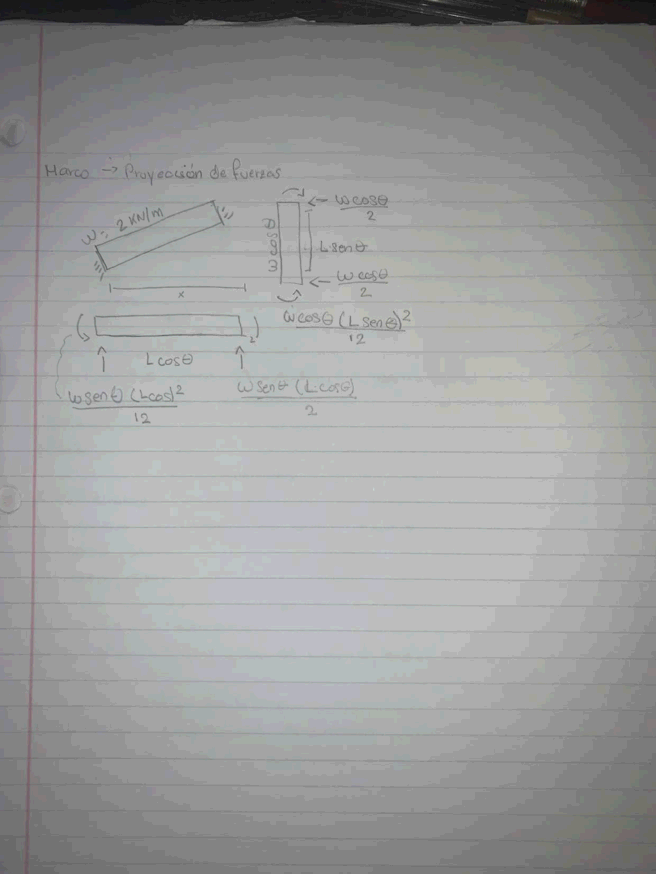 Marco → Proyección de fuerzas
W = 2 KN/m
x
← wcosθ/2
L senθ
← wcosθ/2
wcosθ (L senθ)²/12
L cosθ
wsenθ (Lcos)²/12
wsenθ (Lcosθ)/2